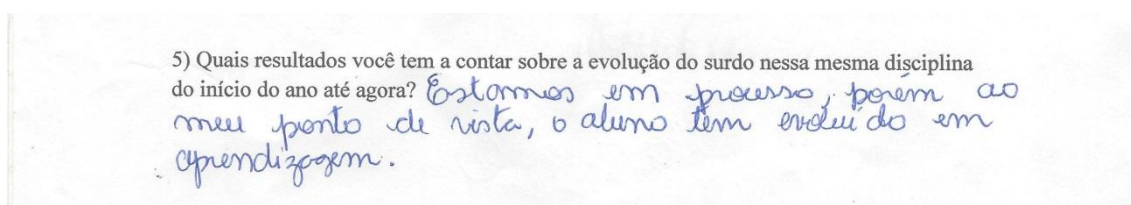 5) Quais resultados você tem a contar sobre a evolução do surdo nessa mesma disciplina
do início do ano até agora? Estamos em processo, porém ao
meu ponto de vista, o aluno tem evoluído em
aprendizagem.